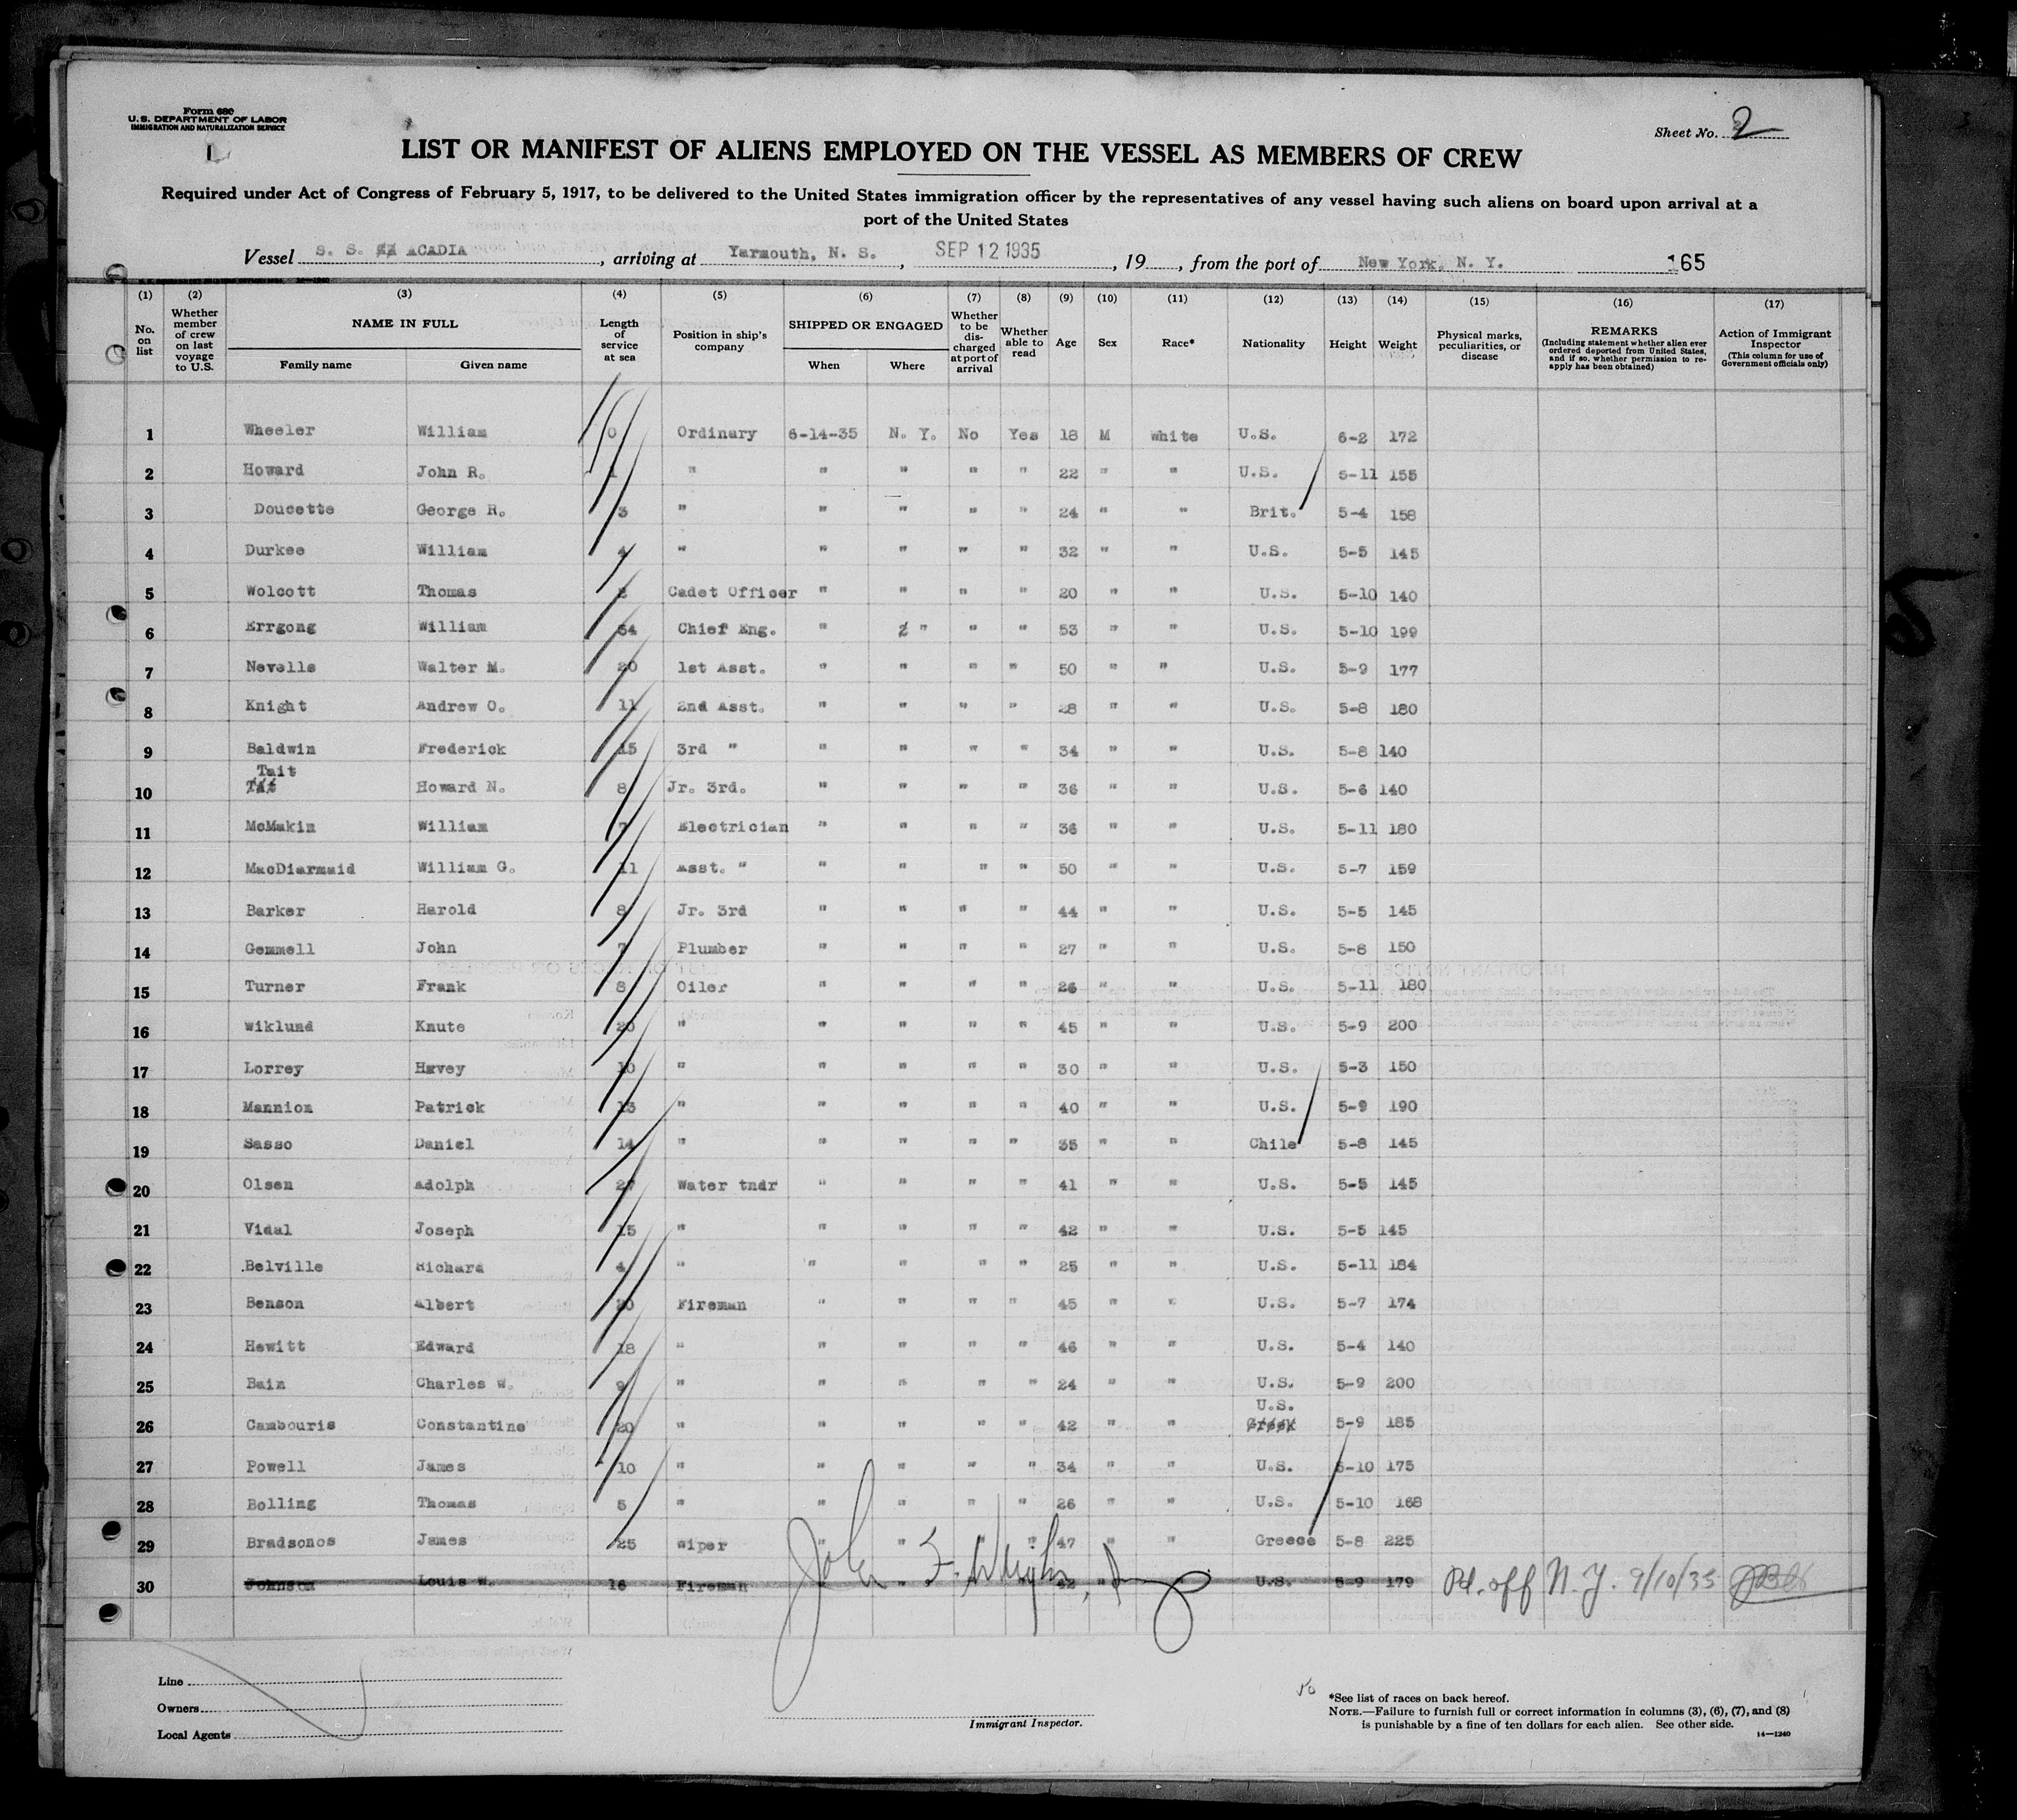 Form 680
U.S. DEPARTMENT OF LABOR
IMMIGRATION AND NATURALIZATION SERVICE
Sheet No. 2
LIST OR MANIFEST OF ALIENS EMPLOYED ON THE VESSEL AS MEMBERS OF CREW
Required under Act of Congress of February 5, 1917, to be delivered to the United States immigration officer by the representatives of any vessel having such aliens on board upon arrival at a
port of the United States
Vessel S. S. ACADIA, arriving at Yarmouth, N. S., SEP 12 1935, 19, from the port of New York, N. Y. 165
(1) (2) (3) (4) (5) (6) (7) (8) (9) (10) (11) (12) (13) (14) (15) (16) (17)
No. on list
Whether member of crew on last voyage to U.S.
NAME IN FULL
Family name Given name
Length of service at sea
Position in ship's company
SHIPPED OR ENGAGED
When Where
Whether to be discharged at port of arrival
Whether able to read
Age
Sex
Race*
Nationality
Height
Weight
Physical marks, peculiarities, or disease
REMARKS
(Including statement whether alien ever ordered deported from United States, and if so, whether permission to re-apply has been obtained)
Action of Immigrant Inspector
(This column for use of Government officials only)
1 Wheeler William 0 Ordinary 6-14-35 N. Y. No Yes 18 M White U.S. 6-2 172
2 Howard John R. 1 " " " " " 22 " " U.S. 5-11 155
3 Doucette George R. 3 " " " " " 24 " " Brit. 5-4 158
4 Durkee William 4 " " " " " 32 " " U.S. 5-5 145
5 Wolcott Thomas Cadet Officer " " " " 20 " " U.S. 5-10 140
6 Errgong William 34 Chief Eng. " " " " 53 " " U.S. 5-10 199
7 Nevells Walter M. 20 1st Asst. " " " " 50 " " U.S. 5-9 177
8 Knight Andrew O. 11 2nd Asst. " " " " 28 " " U.S. 5-8 180
9 Baldwin Frederick 15 3rd " " " " " 34 " " U.S. 5-8 140
Tait
10 Howard N. 8 Jr. 3rd. " " " " 36 " " U.S. 5-6 140
11 McMakin William 7 Electrician " " " " 36 " " U.S. 5-11 180
12 MacDiarmaid William G. 11 Asst. " " " " " 50 " " U.S. 5-7 159
13 Barker Harold 8 Jr. 3rd " " " " 44 " " U.S. 5-5 145
14 Gemmell John 7 Plumber " " " " 27 " " U.S. 5-8 150
15 Turner Frank 8 Oiler " " " " 26 " " U.S. 5-11 180
16 Wiklund Knute 20 " " " " " 45 " " U.S. 5-9 200
17 Lorrey Havey 10 " " " " " 30 " " U.S. 5-3 150
18 Mannion Patrick 13 " " " " " 40 " " U.S. 5-9 190
19 Sasso Daniel 14 " " " " " 35 " " Chile 5-8 145
20 Olsen Adolph 27 Water tndr " " " " 41 " " U.S. 5-5 145
21 Vidal Joseph 15 " " " " " 42 " " U.S. 5-5 145
22 Belville Richard 4 " " " " " 25 " " U.S. 5-11 184
23 Benson Albert 20 Fireman " " " " 45 " " U.S. 5-7 174
24 Hewitt Edward 18 " " " " " 46 " " U.S. 5-4 140
25 Bain Charles W. 9 " " " " " 24 " " U.S. 5-9 200
U.S.
26 Cambouris Constantine 20 " " " " " 42 " " Greek 5-9 185
27 Powell James 10 " " " " " 34 " " U.S. 5-10 175
28 Bolling Thomas 5 " " " " " 26 " " U.S. 5-10 168
29 Bradsonos James 25 Wiper " " " " 47 " " Greece 5-8 225
30 Johnson Louis W. 16 Fireman " " 42 " U.S. 5-9 179 Pd. off N. Y. 9/10/35
John F.
Line
Owners
Local Agents
Immigrant Inspector.
*See list of races on back hereof.
NOTE.—Failure to furnish full or correct information in columns (3), (6), (7), and (8)
is punishable by a fine of ten dollars for each alien. See other side.
14—1240